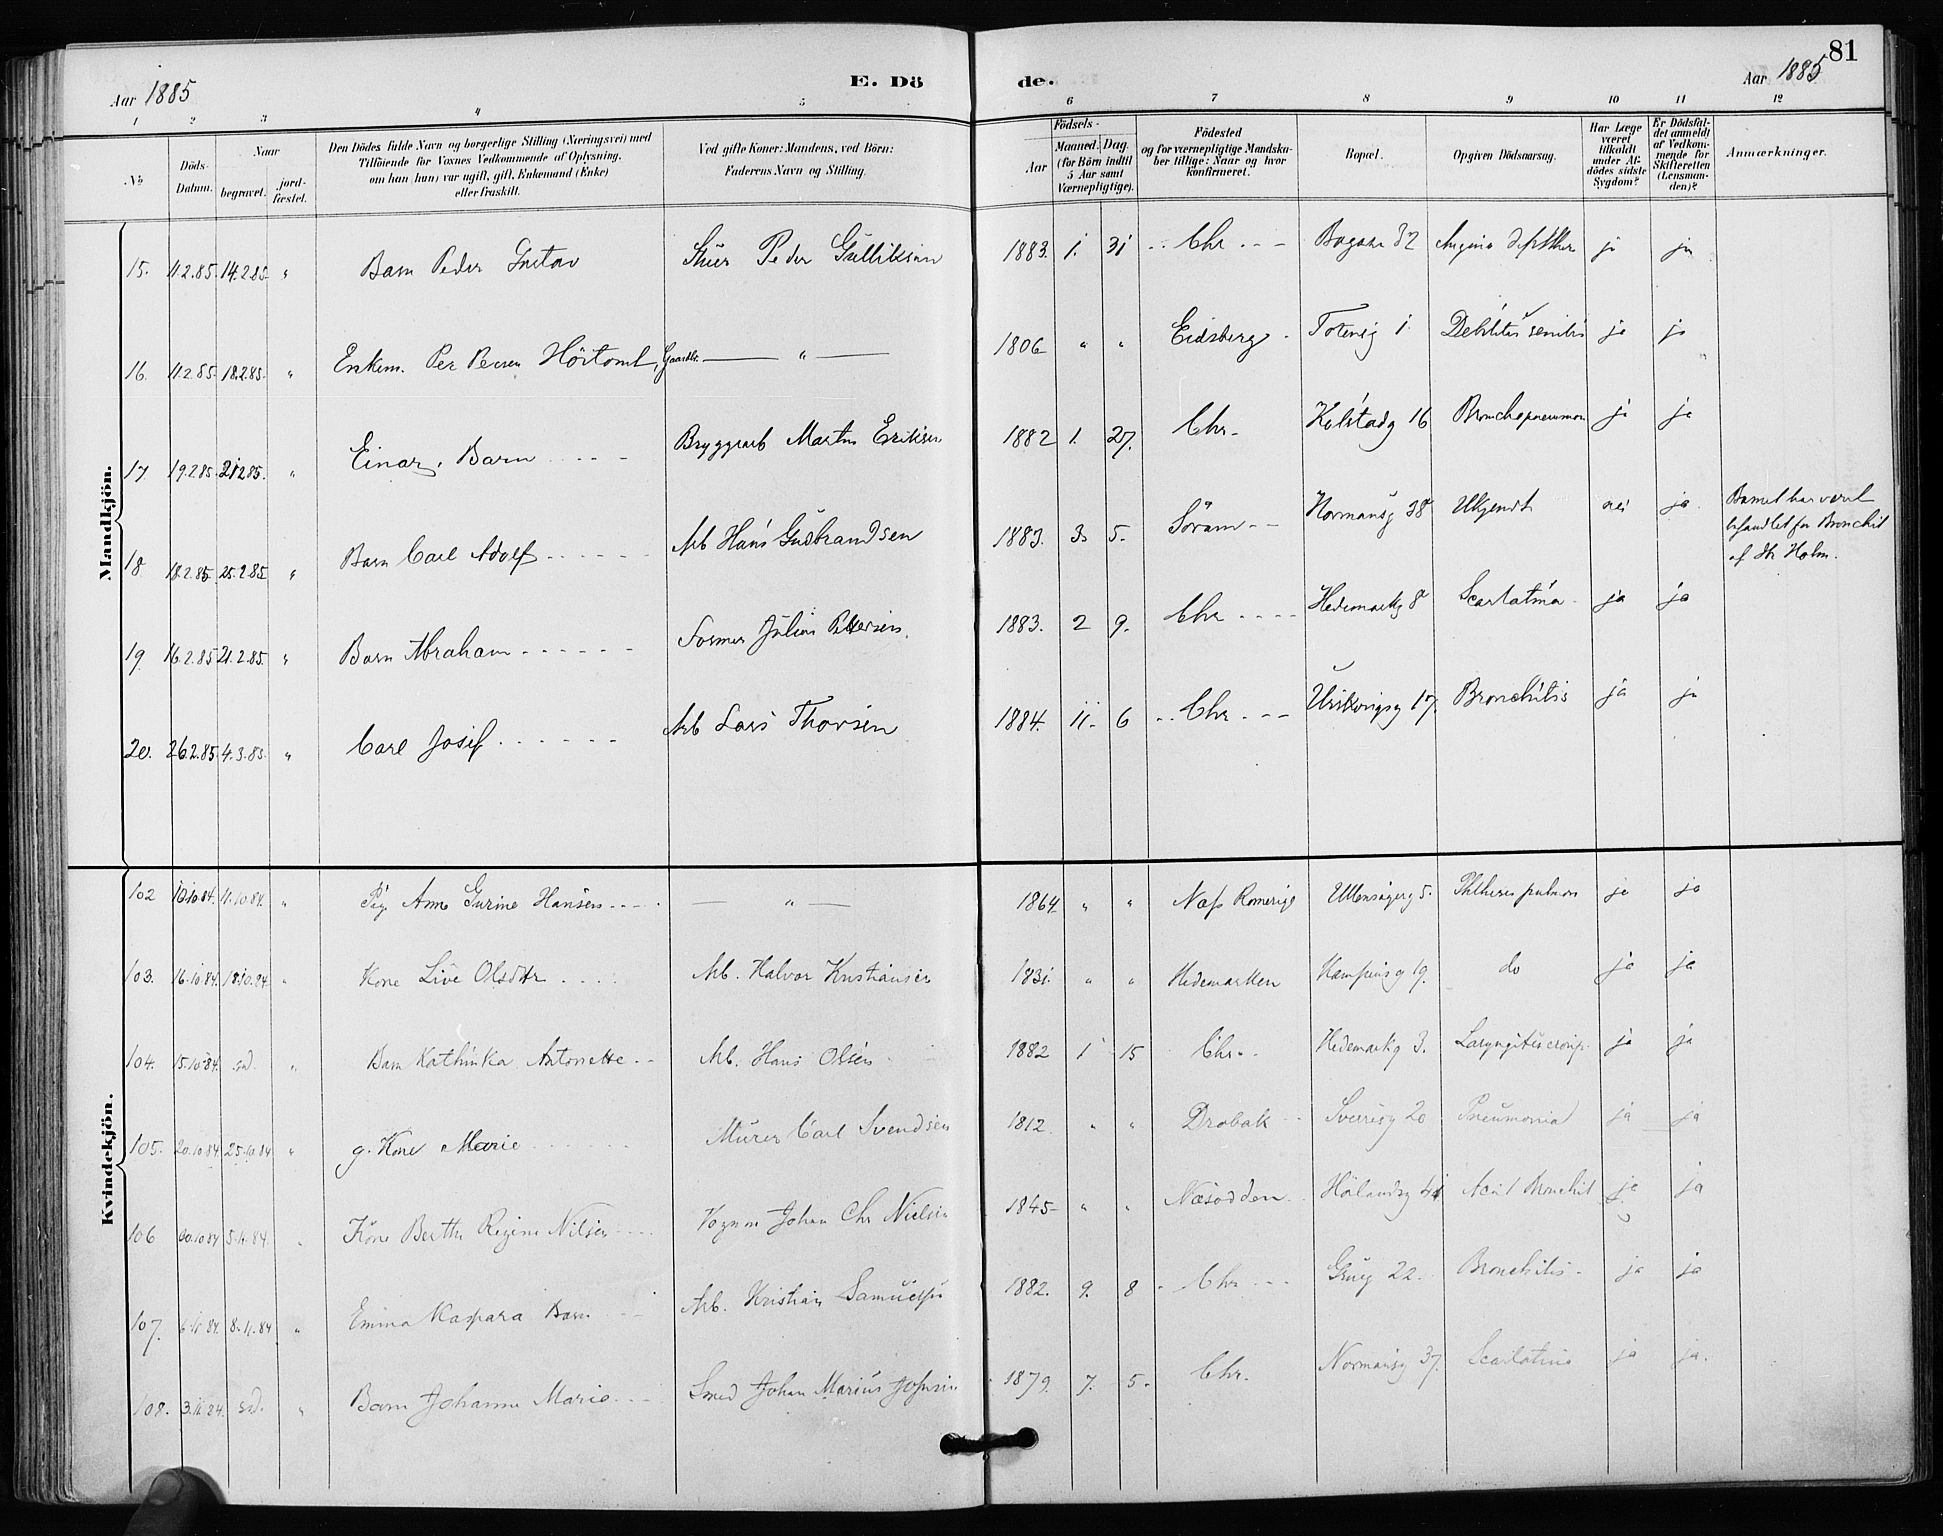 81
Aar 1885 E. Dö de. Aar 1885
1 2 3 4 5 6 7 8 9 10 11 12
No
Döds-Datum.
Naar begravet. jordfæstet.
Den Dödes fulde Navn og borgerlige Stilling (Næringsvei) med Tilföiende for Voxnes Vedkommende af Oplysning, om han (hun) var ugift, gift, Enkemand (Enke) eller fraskilt.
Ved gifte Koner: Mandens, ved Börn: Faderens Navn og Stilling.
Födsels- Aar Maaned. Dag. (for Börn indtil 5 Aar samt Værnepligtige).
Födested og for værnepligtige Mandskaber tillige: Naar og hvor konfirmeret.
Bopæl.
Opgiven Dödsaarsag.
Har Læge været tilkaldt under Afdödes sidste Sygdom?
Er Dödsfaldet anmeldt af Vedkommende for Skifteretten (Lensmanden)?
Anmærkninger.
Mandkjön.
15. 11.2.85. 14.2.85. " Barn Peder Gustav Peder Gulliksen 1883. 1. 31 Chr. 32 Angina ja ja
16. 11.2.85. 18.2.85. " Enkem. Per Hörtomt, Gaardbr. " 1806 " " Eidsberg Totensg 1 Debilitas senilis ja ja
17. 19.2.85. 21.2.85. " Einar, Barn Bryggearb Martin Eriksen 1882 1. 27. Chr. Kolstadg 16 Bronchopneumon ja ja
18. 18.2.85. 25.2.85. " Barn Carl Adolf Arb Hans Gudbrandsen 1883. 3. 5. Sörum Normansg 38 Ukjendt nei ja Barnet har været behandlet for Bronchit af Dr Holm.
19. 16.2.85. 21.2.85. " Barn Abraham Former Julius Pettersen 1883. 2 9. Chr Hedemarkg 8 Scarlatina ja ja
20. 26.2.85. 4.3.85. " Carl Josef Arb Lars Thorsen 1884. 11. 6 Chr. 17. Bronchitis ja ja
Kvindekjön.
102 10.10.84. 11.10.84. " Pig. Anne Gurine Hansen " 1864 " " Næs Romerige Ullensagerg 5. ja ja
103. 16.10.84. 18.10.84. " Kone Live Olsdtr Arb. Halvor Kristiansen 1831. " " Hedemarken Kampensg 19. do ja ja
104. 15.10.84. sd. " Barn Kathinka Antonette Arb. Hans Olsen 1882 1 15 Chr. Hedemarkg 3. Laryngitis croup. ja ja
105. 20.10.84. 25.10.84 " g. Kone Marie Murer Carl Svendsen 1812 " " Drøbak Sverresg 20 Pneumonia ja ja
106 30.10.84 5.11.84. " Kone Berthe Regine Nilsen Vognm Johan Chr Nielsen 1845 " " Næsodden Hölandsg 41 Acut Bronchit ja ja
107. 6.11.84. 8.11.84 " Emma Kaspara Barn Arb. Kristian Samuelsen 1882. 9. 8 Chr. Grueg 22. Bronchitis ja ja
108. 3.11.84. sd. " Barn Johanne Marie Smed Johan Marius 1879. 7. 5. Chr. Normansg 37. Scarlatina ja ja.